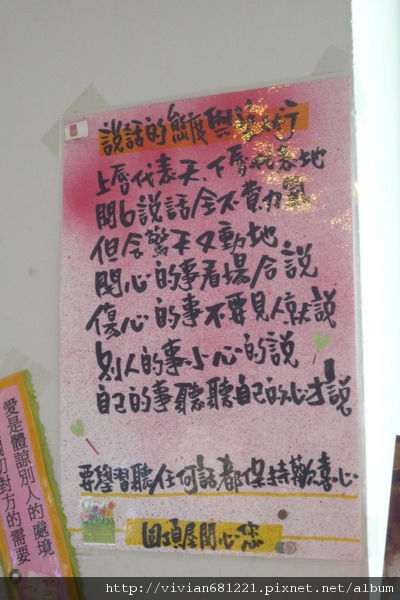 說話的態度與藝術
上唇代表天、下唇代表地
開口說話全不費力氣
但會驚天又動地
開心的事看場合說
傷心的事不要見人就說
別人的事小心的說
自己的事聽聽自己的心才說
要學習聽任何話都保持歡喜心
回頂屋關心您
愛是體諒別人的處境
關切對方的需要
http://vivian681221.pixnet.net/album